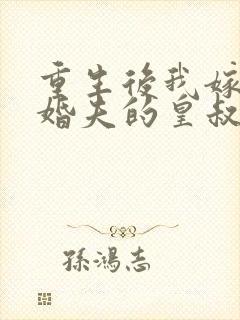 重生後我嫁
婚夫的皇叔
孫鴻志